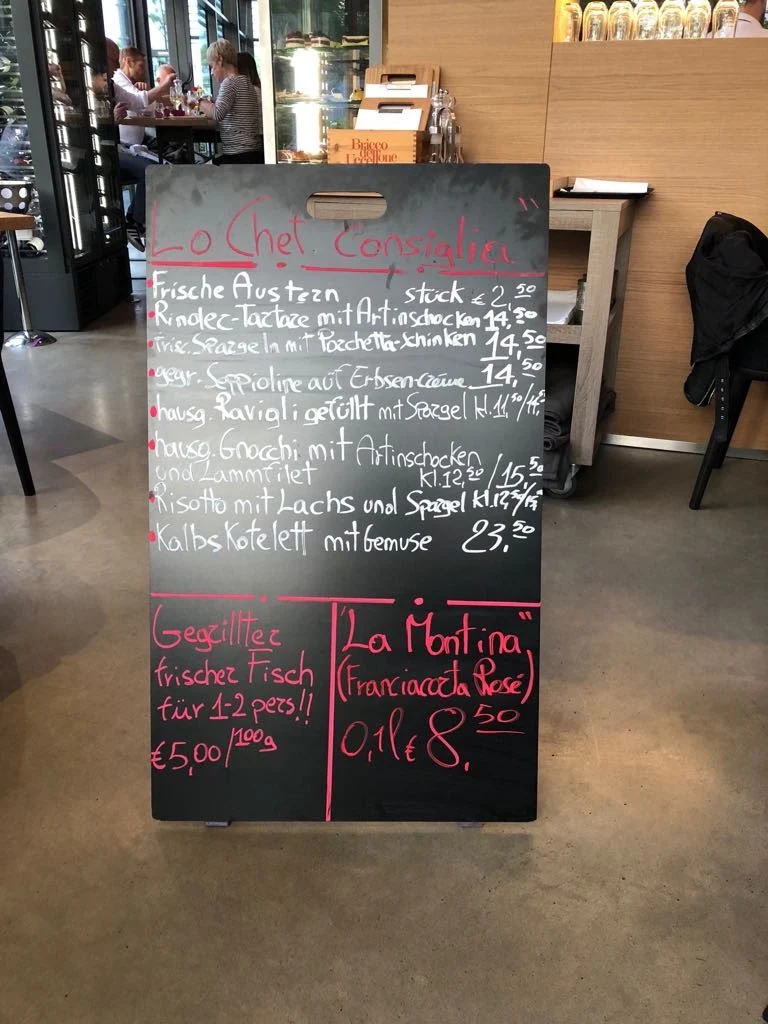 Lo Chef Consiglia"
Frische Austern stück € 2,50
Rinder-Tartare mit Artinschocken 14,50
fris. Spargeln mit Porchetta-schinken 14,50
gegr. Seppioline auf Erbsen-Creme 14,50
hausg. Raviqli gefüllt mit Spargel kl.11,50/
hausg. Gnocchi mit Artinschocken
und Lammfilet kl.12,50/15,50
Risotto mit Lachs und Spargel kl.12,50/15,50
Kalbs Kotelett mit Gemuse 23,50
Gegrillter
frischer Fisch
für 1-2 pers!!
€5,00/100g
"La Montina"
(Franciacorta Rosé)
0,1l € 8,50
Bricco
dell'
Uccellone